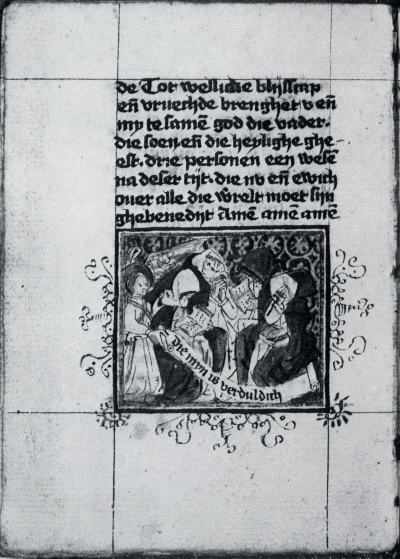 de Tot wellicke blijscap
eñ vruechde brenghet v eñ
my te samē god die vader.
die soen eñ die heylighe ghe-
est. drie personen een wesē
na deser tijt. die nv eñ ewich
ouer alle die wrelt moet sijn
ghebenedijt Amē amē amē
Die myn is verduldich